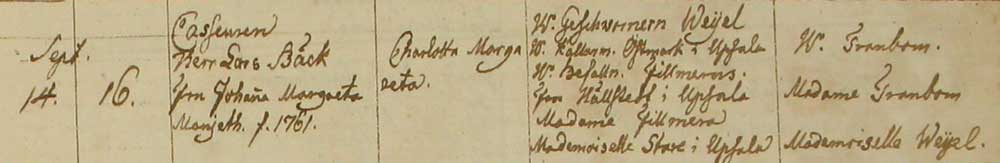 Sept.
14.
16.
Casseuren
Herr Lars Bäck
Fru Johaña Margareta
f. 1761.
Charlotta Marga
reta.
Hr. Geschwornern Weijel
Hr. Källarm. Öfmark i Upsala
Hr. Befallm. Fillmerus.
Fru Hällstedt i Upsala
Madame Fillmera
Mademoiselle Stare i Upsala
Hr. Tranbom.
Madame Tranbom
Mademoiselle Weijel.